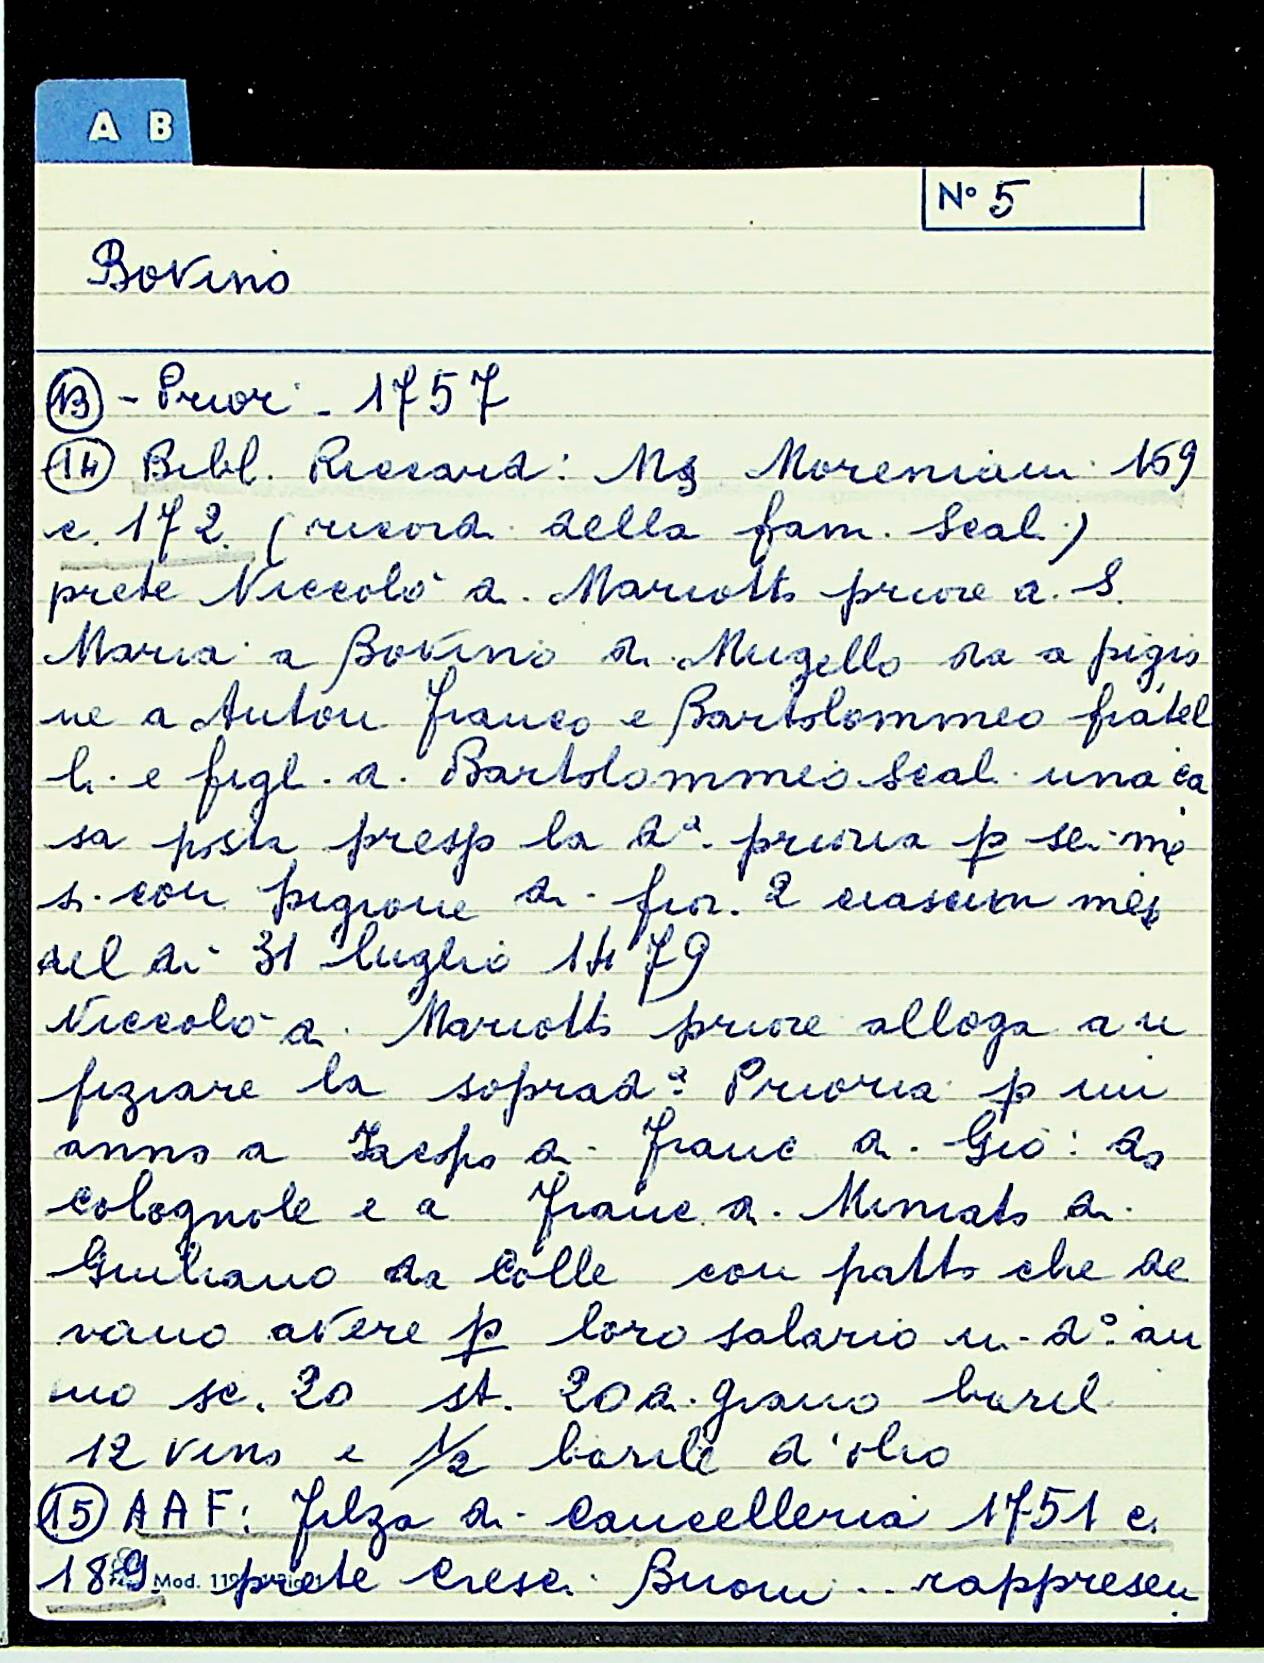 A B
Nº 5
Bovino
13 - Priori - 1757
14 Bibl. Riccard: Ms Moreniani 169
c. 172. (ricordi della fam. Scali)
prete Niccolò di Mariotto priore di S.
Maria a Bovino di Mugello da a pigio
ne a Anton Franco e Bartolommeo fratel
li e figli di Bartolommeo Scali una ca
sa posta presso la dª prioria p sei me
si con pigione di fior. 2 ciascun mese
nel dì 31 luglio 1479
Niccolò di Mariotto priore alloga a u
fiziare la sopradª Prioria p un
anno a Iacopo di Franc di Gio: da
Colognole e a Franc di Miniato di
Giuliano da Colle con patto che de
vano avere p loro salario in dº an
no sc. 20 st. 20 di grano baril
12 vino e 1/2 barile d'olio
15 AAF: Filza di Cancelleria 1751 c.
189. prete Cresci Buoni .. rappresen